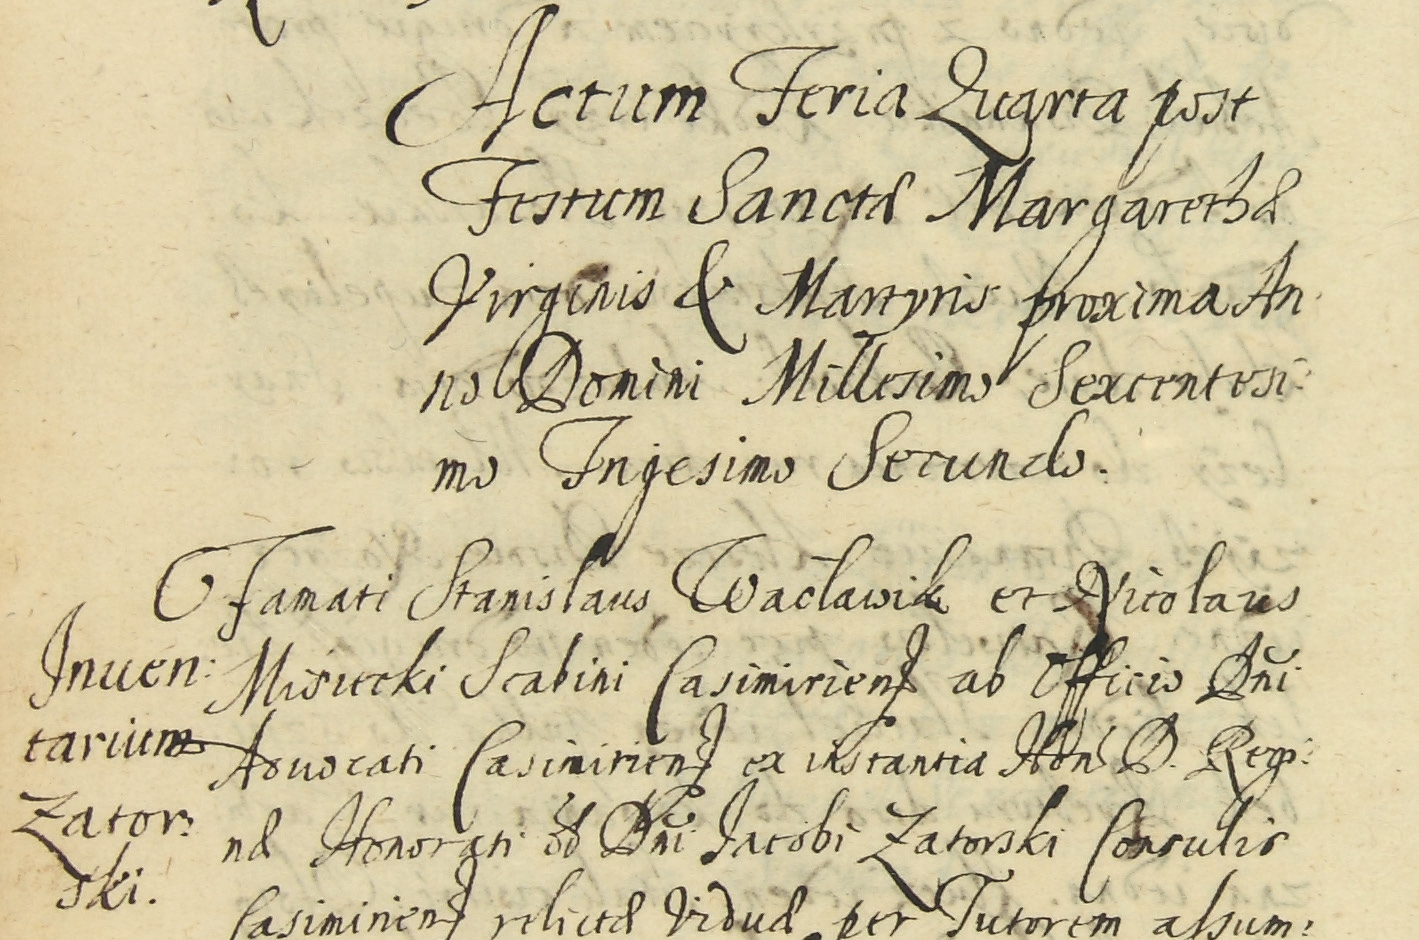 Actum Feria Quarta post
Festum Sanctæ Margarethæ
Virginis & Martyris proxima An
no Domini Millesimo Sexcentesi:
mo Trigesimo Secundo.
Famati Stanislaus Wacławik et Nicolaus
Misiecki Scabini Casimiriens ab Officio Dni
Advocati Casimiriens ex instantia Hon D. Regi:
næ Honorati od Dni Jacobi Zatorski Consulis
Casimiriens relictæ Viduæ per Tutorem assum:
Inuen:
tarium
Zator:
ski.